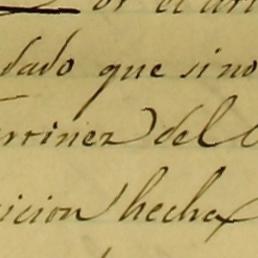 dado que sino
rtinez del
icion hecha